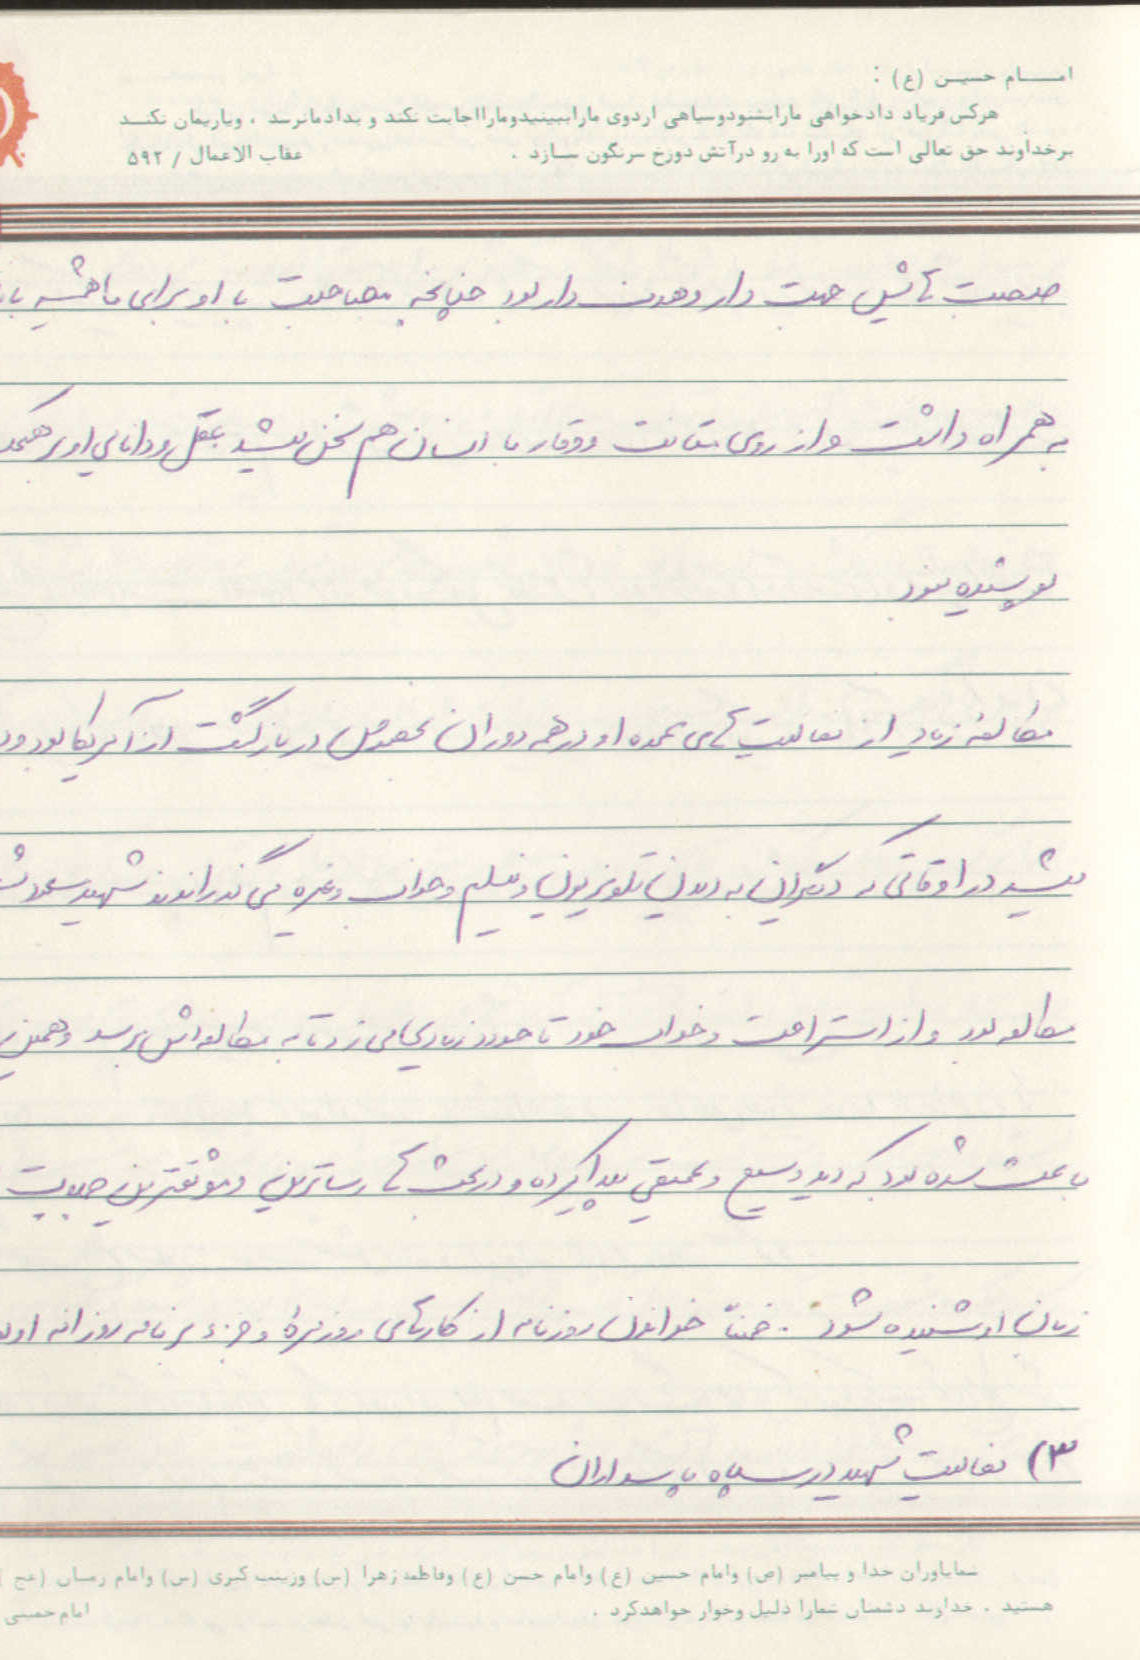 امـــام حسیــن (ع) :
هرکس فریاد دادخواهی مارابشنودوسیاهی اردوی مارابببیندیدومارااجابت نکند و بدادمانرسد ، ویاریمان نکنــد
برخداوند حق تعالی است که اورا به رو درآتش دوزخ سرنگون ســازد . عقاب الاعمال / ۵۹۲
صحبت هائش جهت دار وهدف دار بود چنانچه مصاحبت با او برای ما همیشه
به همراه داشت و از روی متانت ووقار با انسان هم سخن میشد بعقل ودانایی او
پوشیده نبود
مطالعهٔ زیاد از فعالیت های عمده او در همه دوران تحصیل در بازگشت از آمریکا بود
میشد در اوقاتی که دیگران به دیدن تلویزیون و فیلم وخواب وغیره می گذراندند شهید
مطالعه بود و از استراحت وخواب خود تا حدود زیادی می زد تا به مطالعه اش برسد وهمین
باعث شده بود که دید وسیع وعمیقی پیدا کرده و در بحث ها رساترین وموثقترین
زبان او شنیده شود . ضمناً خواندن روزنامه از کارهای روزمرهٔ وجزء برنامه روزانه
۳) فعالیت شهید در سپاه پاسداران
شمایاوران خدا و پیامبر (ص) وامام حسین (ع) وامام حسن (ع) وفاطمه زهرا (س) وزینب کبری (س) وامام زمــان (عج
هستید . خداوند دشمنان شمارا ذلیل وخوار خواهدکرد . امام خمینی